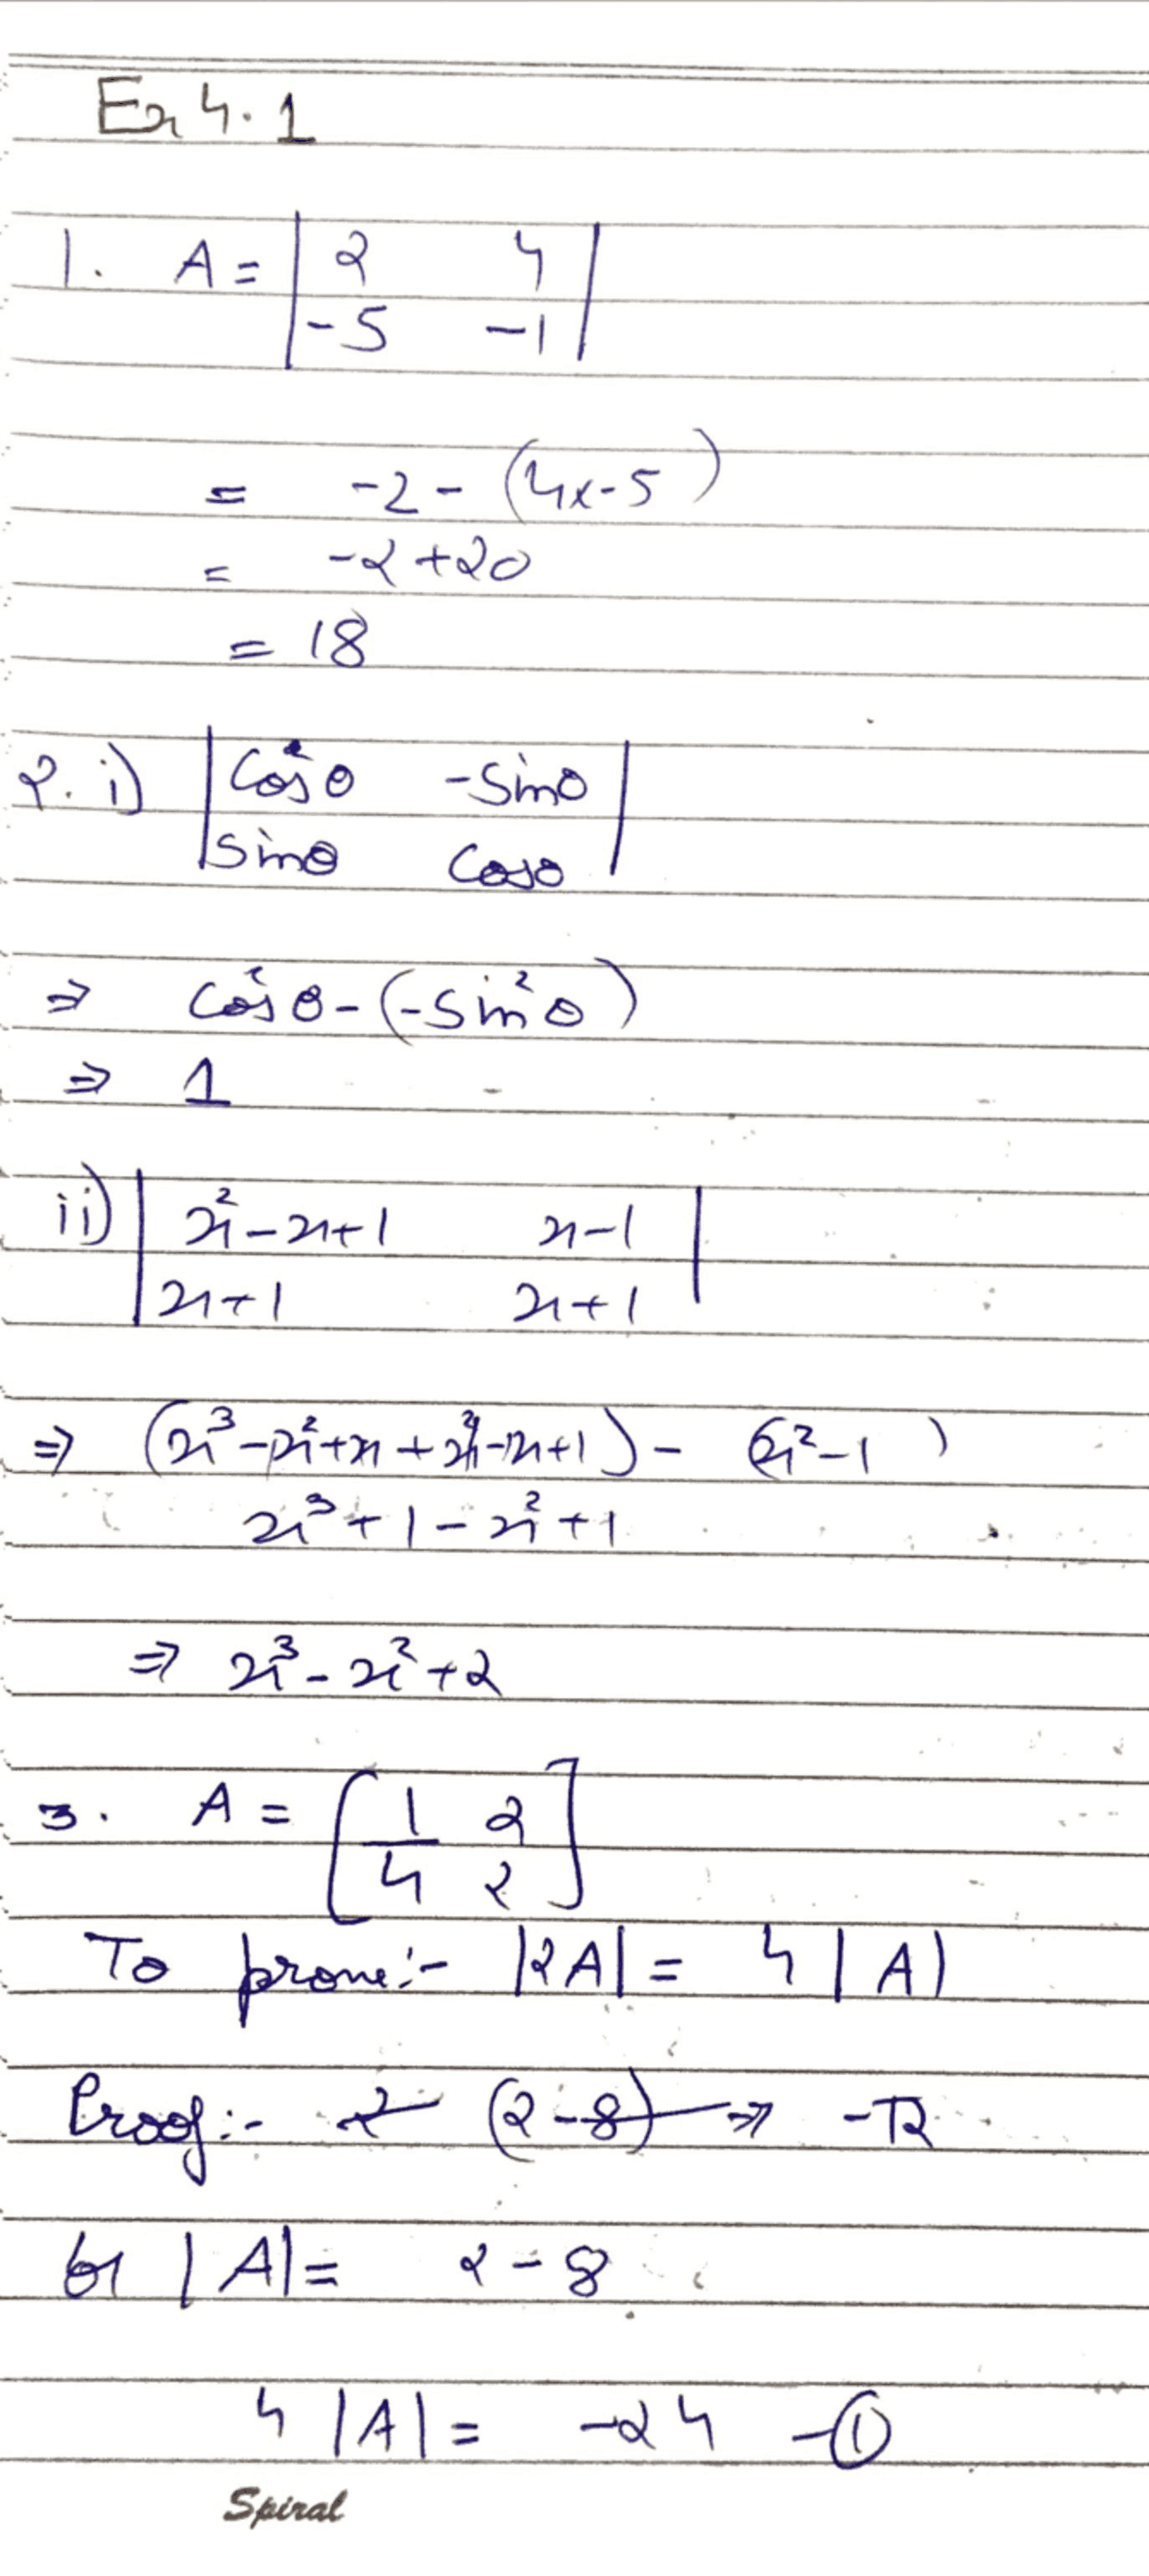 Ex 4.1
1. A = | 2 4 |
| -5 -1 |
= -2 - (4x-5)
= -2 + 20
= 18
2. i) | cos²θ -sinθ |
| sinθ cosθ |
⇒ cos²θ - (-sin²θ)
⇒ 1
ii) | x² - x + 1 x - 1 |
| x + 1 x + 1 |
⇒ (x³ - x² + x + x² - x + 1) - (x² - 1)
x³ + 1 - x² + 1
⇒ x³ - x² + 2
3. A = [ 1 2 ]
[ 4 2 ]
To prove:- |2A| = 4 |A|
Proof:- 2 (2-8) ⇒ -12
|A| = 2 - 8
4 |A| = -24 - ①
Spiral